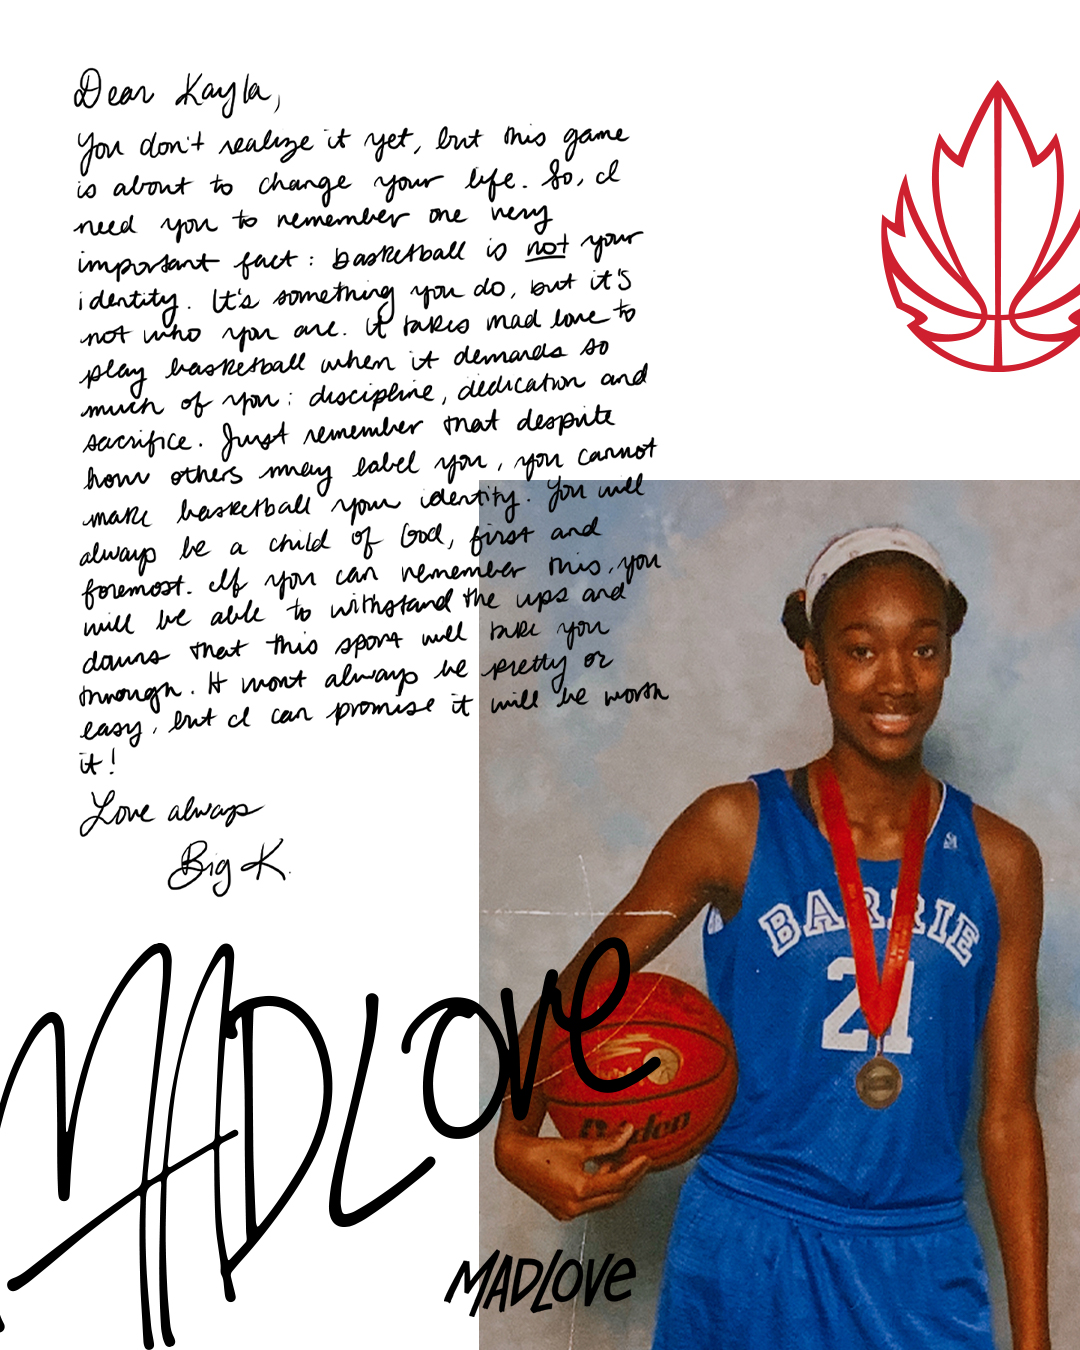 Dear Kayla,
You don't realize it yet, but this game
is about to change your life. So, I
need you to remember one very
important fact: basketball is not your
identity. It's something you do, but it's
not who you are. It takes mad love to
play basketball when it demands so
much of you: discipline, dedication and
sacrifice. Just remember that despite
how others may label you, you cannot
make basketball your identity. You will
always be a child of God, first and
foremost. If you can remember this, you
will be able to withstand the ups and
downs that this sport will take you
through. It wont always be pretty or
easy, but I can promise it will be worth
it!
Love always
Big K.
BARRIE
21
Baden
MADLOVE
MADLOVE